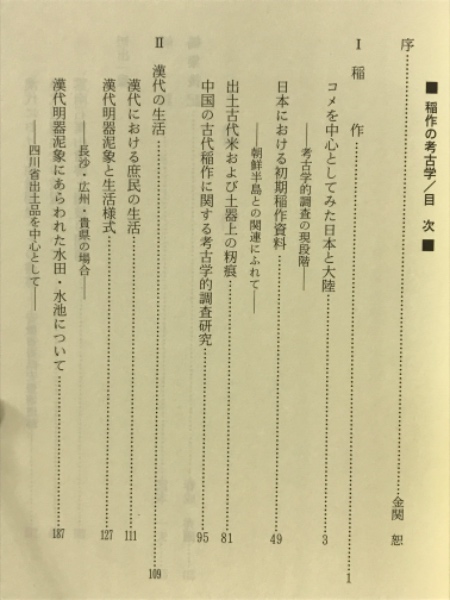 ■ 稲作の考古学/目 次 ■
序……金関 恕
Ⅰ 稲 作……1
コメを中心としてみた日本と大陸……3
——考古学的調査の現段階——
日本における初期稲作資料……49
——朝鮮半島との関連にふれて——
出土古代米および土器上の籾痕……81
中国の古代稲作に関する考古学的調査研究……95
Ⅱ 漢代の生活……109
漢代における庶民の生活……111
漢代明器泥象と生活様式……127
——長沙・広州・貴県の場合——
漢代明器泥象にあらわれた水田・水池について……187
——四川省出土品を中心として——